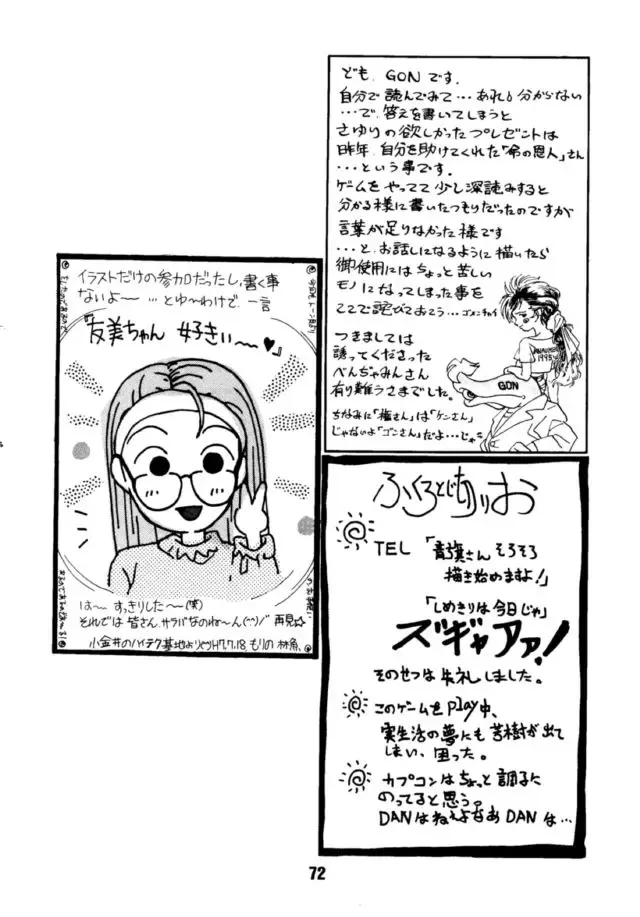 ども、GONです。
自分で読んでみて…あれ？分からない
…で、答えを書いてしまうと
さゆりの欲しかったプレゼントは
昨年、自分を助けてくれた「命の恩人」さん
…という事です。
ゲームをやってて少し深読みすると
分かる様に書いたつもりだったのですが
言葉が足りなかった様です
…と、お話しになるように描いたら
御使用にはちょっと苦しい
モノになってしまった事を
ここで詫びておこう…ゴメンチャイ
つきましては
誘ってくださった
べんぢゃみんさん
有り難うさまでした。
ちなみに「権さん」は「ケンさん」
じゃないよ「ゴンさん」だよ…じゃ
GON
1995
イラストだけの参加だったし、書く事
ないよ〜 …とゆ〜わけで 一言
『友美ちゃん 好きぃ〜〜♥』
は〜 すっきりした〜(笑)
それでは皆さん、サラバなのね〜ん(^^)/゛ 再見☆
小金井のハイテク基地より H7.7.18. もりの 林魚
ふくろとじきりお
TEL 「青旗さんそろそろ
描き始めますよ！」
「しめきりは今日じゃ」
ズギャアァ！
そのせつは失礼しました。
このゲームをplay中、
実生活の夢にも苦樹が出て
しまい、困った。
カプコンはちょっと調子に
のってると思う。
DANはねぇよなぁ DANは…
72